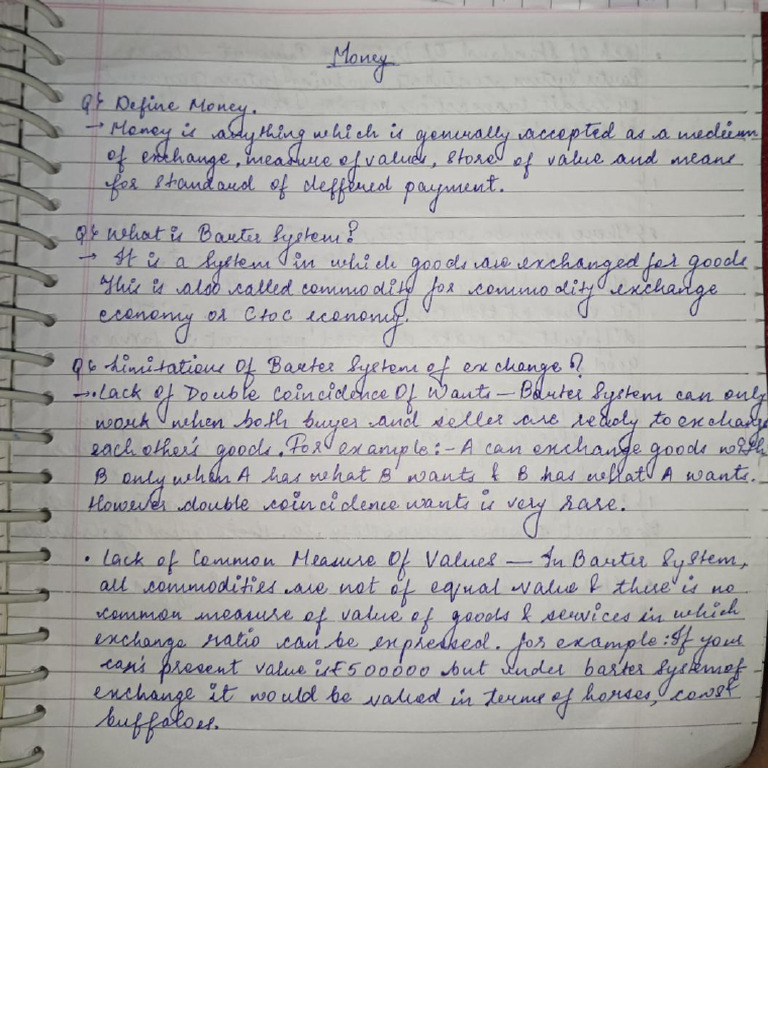 Money
Q: Define Money.
→ Money is anything which is generally accepted as a medium
of exchange, measure of values, store of value and means
for standard of deffered payment.
Q: What is Barter System?
→ It is a System in which goods are exchanged for goods
This is also called commodity for commodity exchange
economy or C to C economy.
Q: Limitations Of Barter System of exchange?
→ • Lack of Double Coincidence Of Wants — Barter System can only
work when both buyer and seller are ready to exchange
each other's goods. For example:- A can exchange goods with
B only when A has what B wants & B has what A wants.
However double coincidence wants is very rare.
• Lack of Common Measure Of Values — In Barter System,
all commodities are not of equal value & there is no
common measure of value of goods & services in which
exchange ratio can be expressed. for example: If your
car's present value is ₹500000 but under barter System of
exchange it would be valued in terms of horses, cows &
buffaloes.